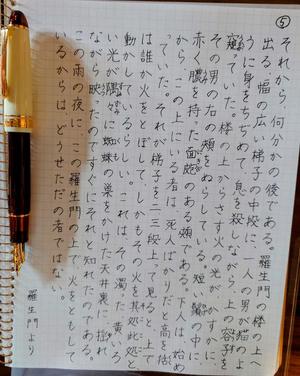 ⑤
それから、何分かの後である。羅生門の楼の上へ
出る、幅の広い梯子の中段に、一人の男が、猫のよ
うに身をちぢめて、息を殺しながら、上の容子を
窺っていた。楼の上からさす火の光が、かすかに、
その男の右の頬をぬらしている。短い鬚の中に、
赤く膿を持った面皰のある頬である。下人は、始め
から、この上にいる者は、死人ばかりだと高を括
っていた。それが、梯子を二三段上って見ると、上で
は誰か火をとぼして、しかもその火を其処此処と
動かしているらしい。これは、その濁った、黄いろ
い光が、隅々に蜘蛛の巣をかけた天井裏に、揺れ
ながら映ったので、すぐにそれと知れたのである。
この雨の夜に、この羅生門の上で、火をともして
いるからは、どうせただの者ではない。
羅生門より